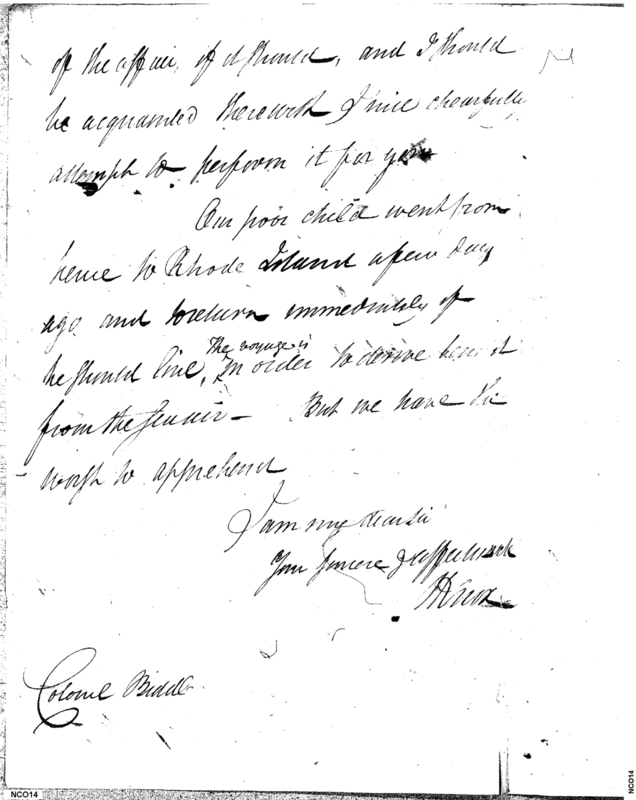 of the affair, if it should, and I should
be acquainted therewith I will chearfully
attempt to perform it for you
Our poor child went from
hence to Rhode Island a few days
ago and to return immediately if
he should live, The voyage is in order to derive benefit
from the Sea air — But we have the
worst to apprehend
I am my dear sir
Your sincere & affectionate
HKnox
Colonel Biddle
NCO14
NCO14